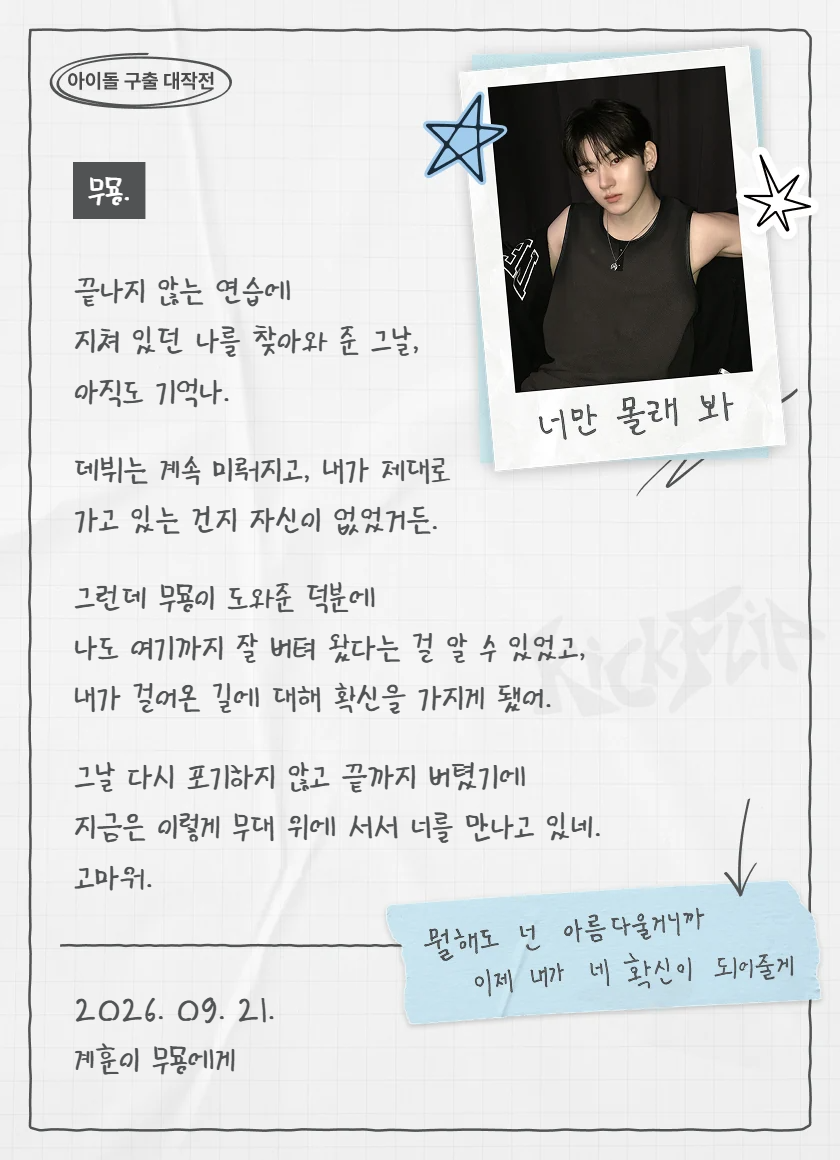 아이돌 구출 대작전
무묭.
너만 몰래 봐
끝나지 않는 연습에
지쳐 있던 나를 찾아와 준 그날,
아직도 기억나.
데뷔는 계속 미뤄지고, 내가 제대로
가고 있는 건지 자신이 없었거든.
그런데 무묭이 도와준 덕분에
나도 여기까지 잘 버텨 왔다는 걸 알 수 있었고,
내가 걸어온 길에 대해 확신을 가지게 됐어.
KickFlip
그날 다시 포기하지 않고 끝까지 버텼기에
지금은 이렇게 무대 위에 서서 너를 만나고 있네.
고마워.
뭘해도 넌 아름다울거니까
이제 내가 네 확신이 되어줄게
2026. 09. 21.
계훈이 무묭에게